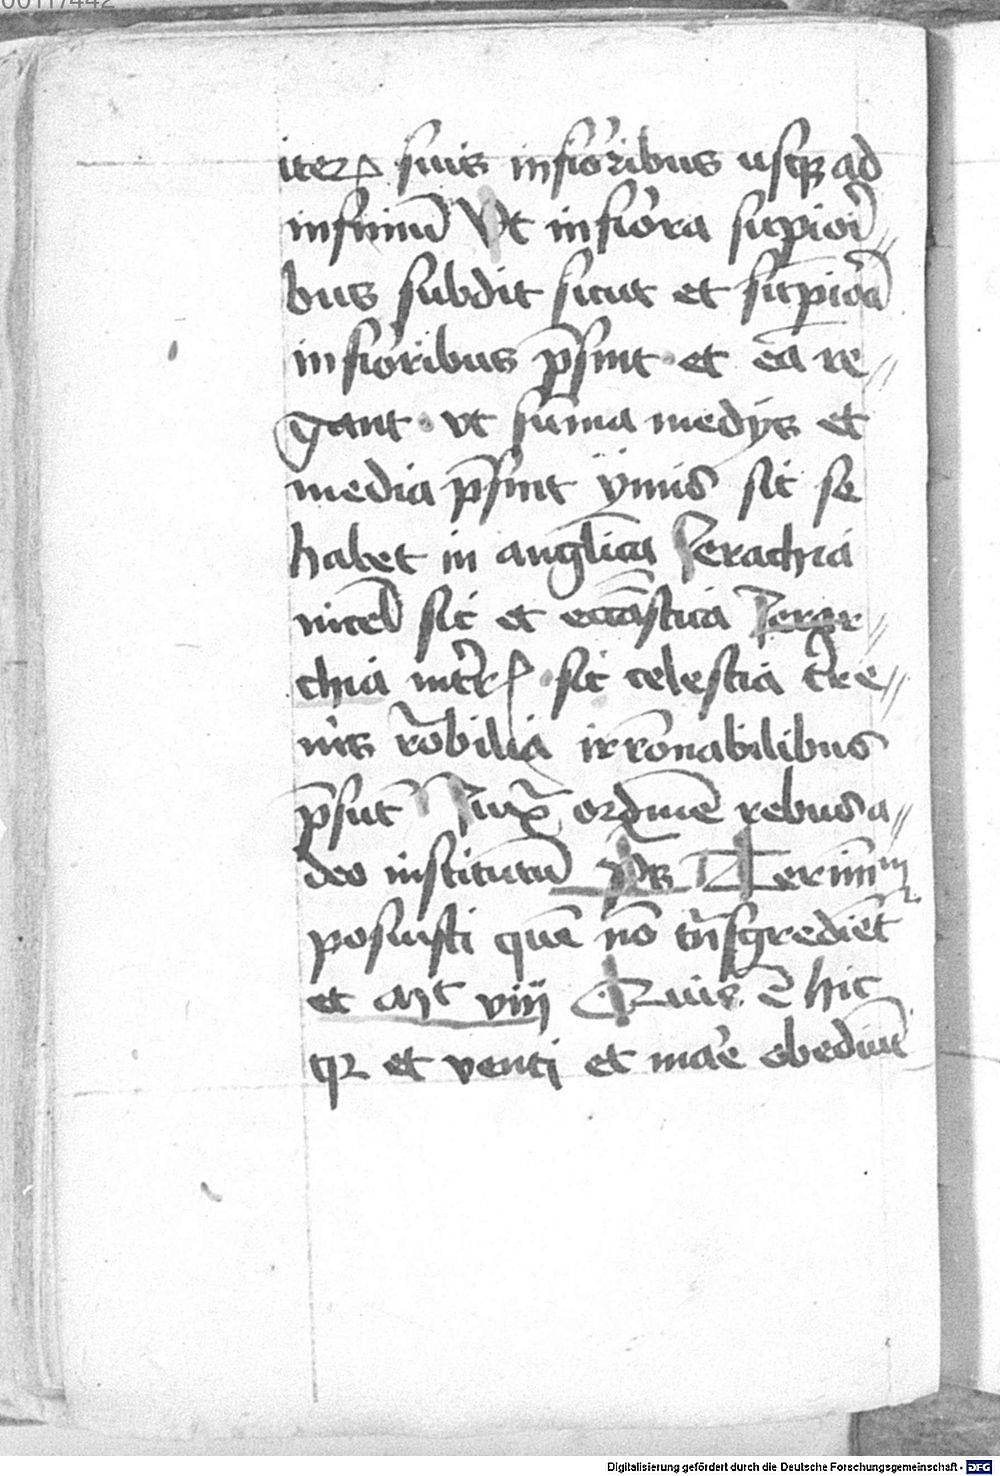 00117442
iteꝝ suis inf̓ioribus usqꝫ ad
infimū Vt inf̓iora sup̱ior̓i//
bus subdit sicut et sup̱iora
inf̓ioribus p̄sint · et ea re//
gant · vt sūma medijs et
media p̄sint ymis sic se
habet in angl̄ica Jerachia
sic et eccāstica Jerar//
chia sic celestia t̓re//
nis rōbilia irrōnabilibus
p̄sūt ordinē rebus a//
deo institutū p̄s Terminū
posuisti quē nō tn̄sgrediēt᷑
et viij Quis ē hic
qꝛ et venti et mare obediūt
Digitalisierung gefördert durch die Deutsche Forschungsgemeinschaft - DFG